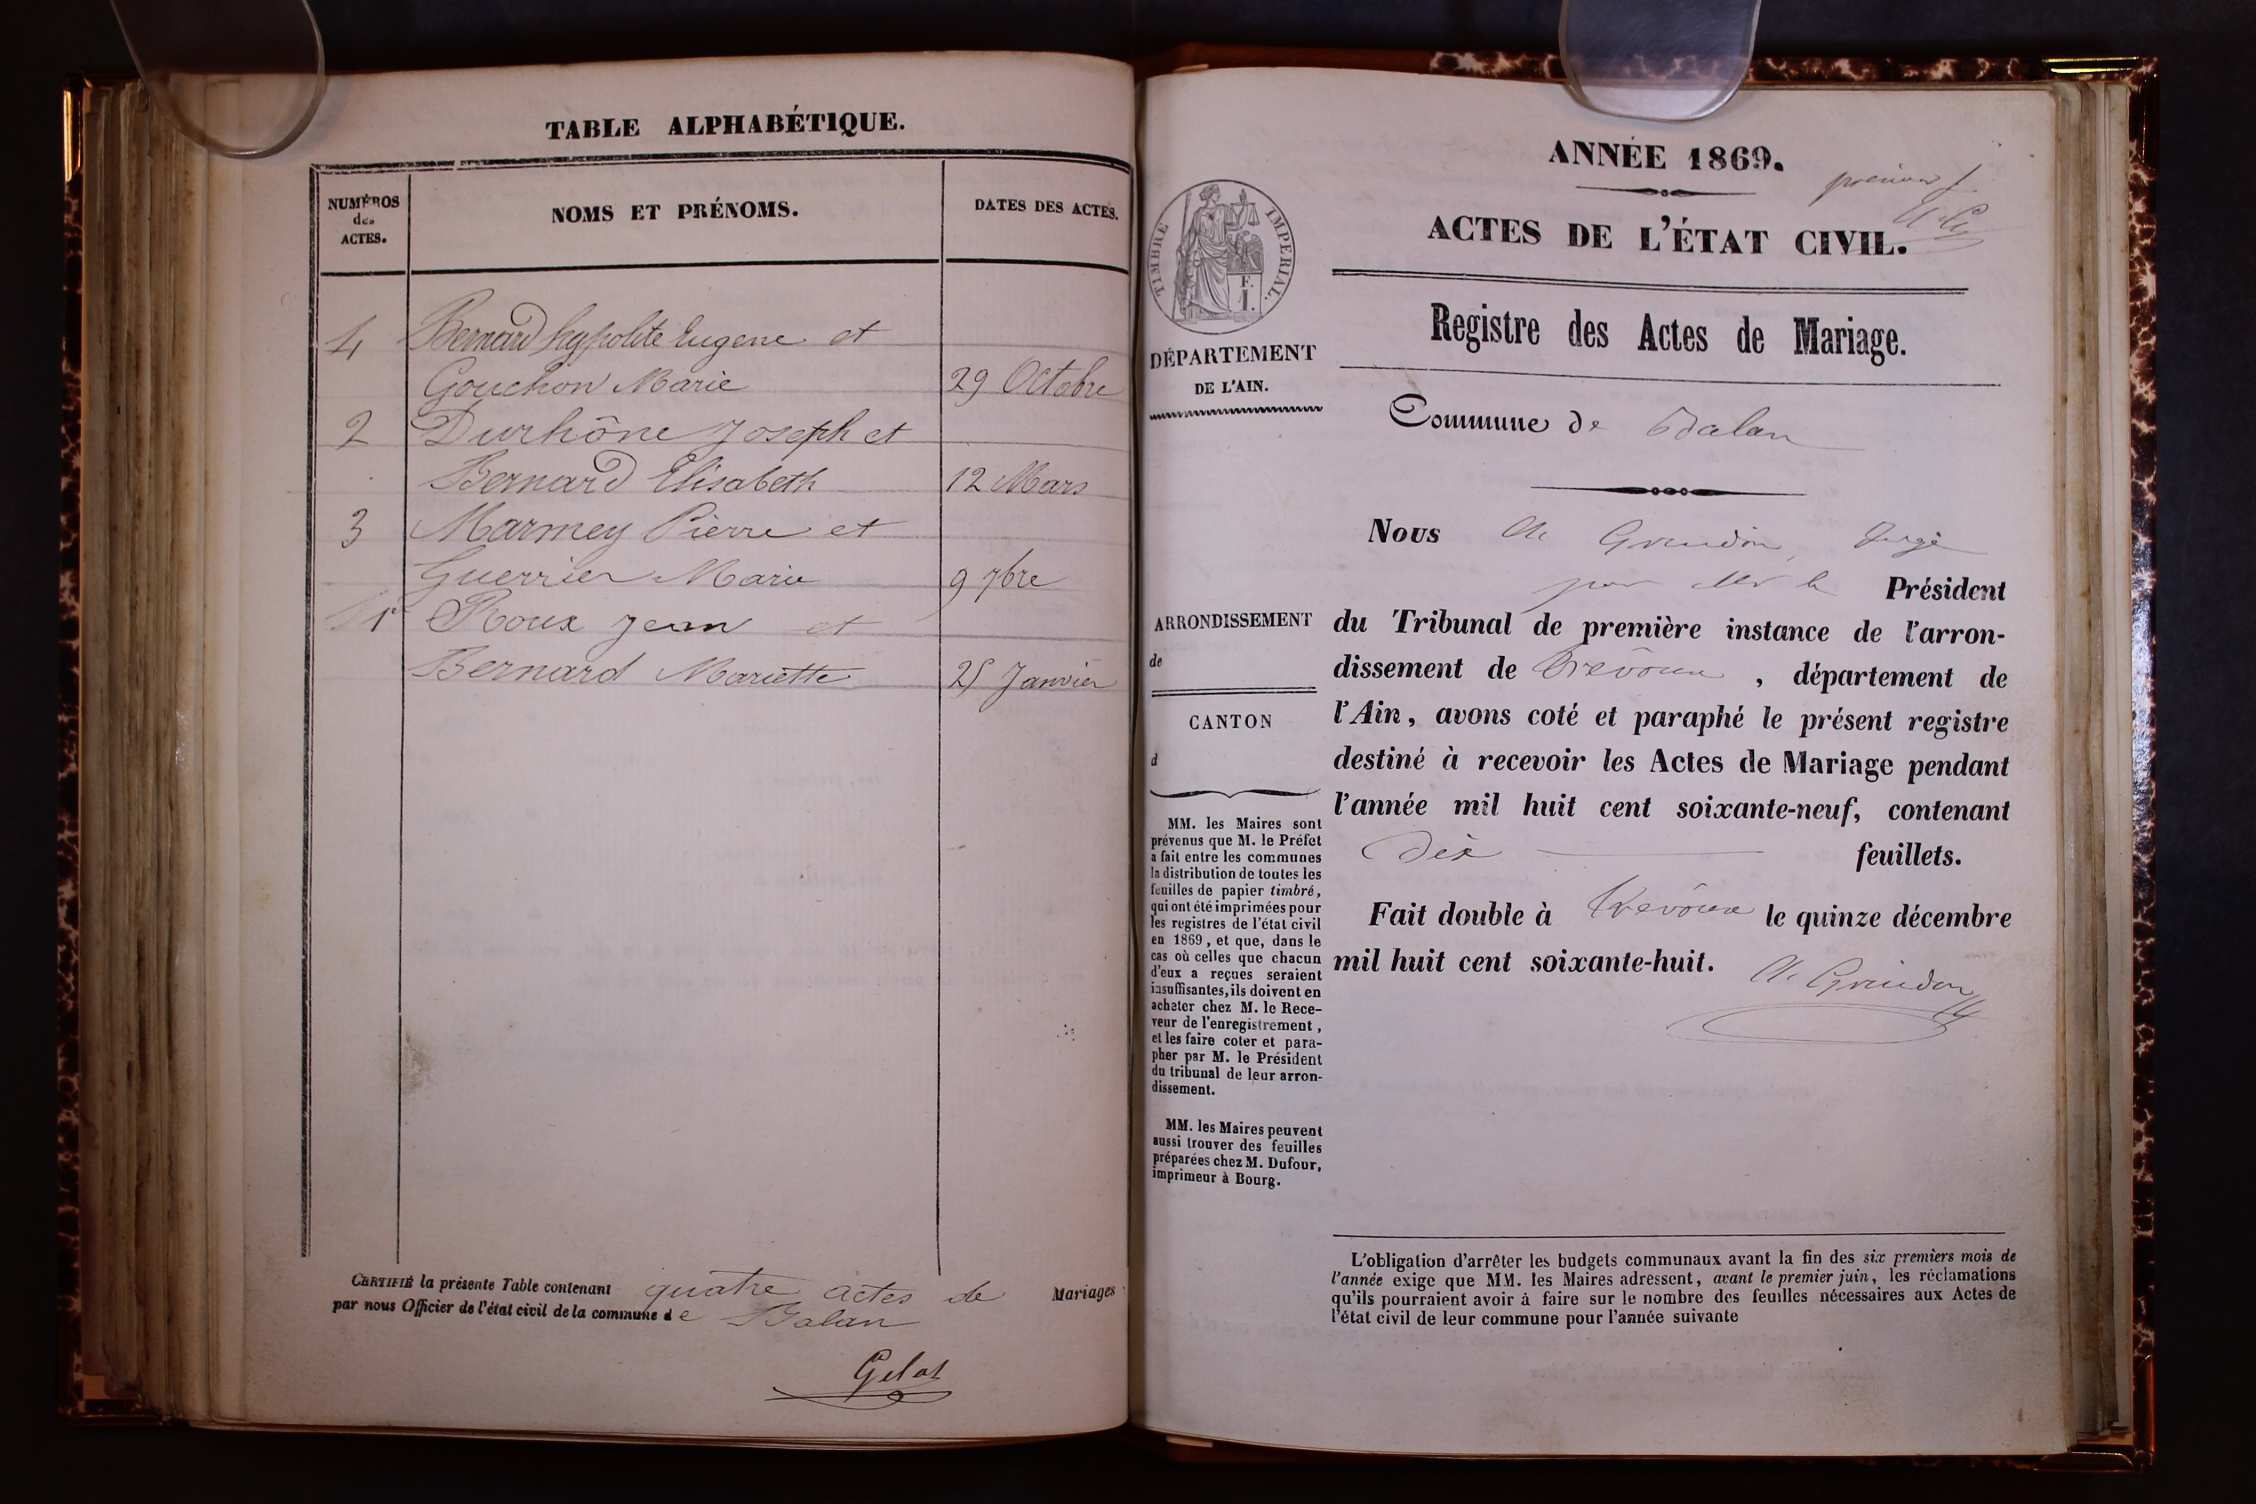 TABLE ALPHABÉTIQUE.
NUMÉROS
des
ACTES.
NOMS ET PRÉNOMS.
DATES DES ACTES.
4 Bernard hyppolite Eugene et
Gouchon Marie 29 Octobre
2 Durhône Joseph et
Bernard Elisabeth 12 Mars
3 Marmey Pierre et
Guerrier Marie 9 7bre
1r Roux Jean et
Bernard Mariette 25 Janvier
CERTIFIÉ la présente Table contenant quatre actes de Mariages
par nous Officier de l'état civil de la commune de Balan
Gelas
ANNÉE 1869.
premier f
ACTES DE L'ÉTAT CIVIL.
TIMBRE IMPERIAL.
F.
1.
Registre des Actes de Mariage.
DÉPARTEMENT
DE L'AIN.
Commune de Balan
Nous Grindon, Juge
pour Mr le Président
ARRONDISSEMENT
de
du Tribunal de première instance de l'arron-
dissement de Trévoux, département de
l'Ain, avons coté et paraphé le présent registre
destiné à recevoir les Actes de Mariage pendant
l'année mil huit cent soixante-neuf, contenant
dix feuillets.
Fait double à Trévoux le quinze décembre
mil huit cent soixante-huit.
Grindon
CANTON
d
MM. les Maires sont
prévenus que M. le Préfet
a fait entre les communes
la distribution de toutes les
feuilles de papier timbré,
qui ont été imprimées pour
les registres de l'état civil
en 1869, et que, dans le
cas où celles que chacun
d'eux a reçues seraient
insuffisantes, ils doivent en
acheter chez M. le Rece-
veur de l'enregistrement,
et les faire coter et para-
pher par M. le Président
du tribunal de leur arron-
dissement.
MM. les Maires peuvent
aussi trouver des feuilles
préparées chez M. Dufour,
imprimeur à Bourg.
L'obligation d'arrêter les budgets communaux avant la fin des six premiers mois de
l'année exige que MM. les Maires adressent, avant le premier juin, les réclamations
qu'ils pourraient avoir à faire sur le nombre des feuilles nécessaires aux Actes de
l'état civil de leur commune pour l'année suivante